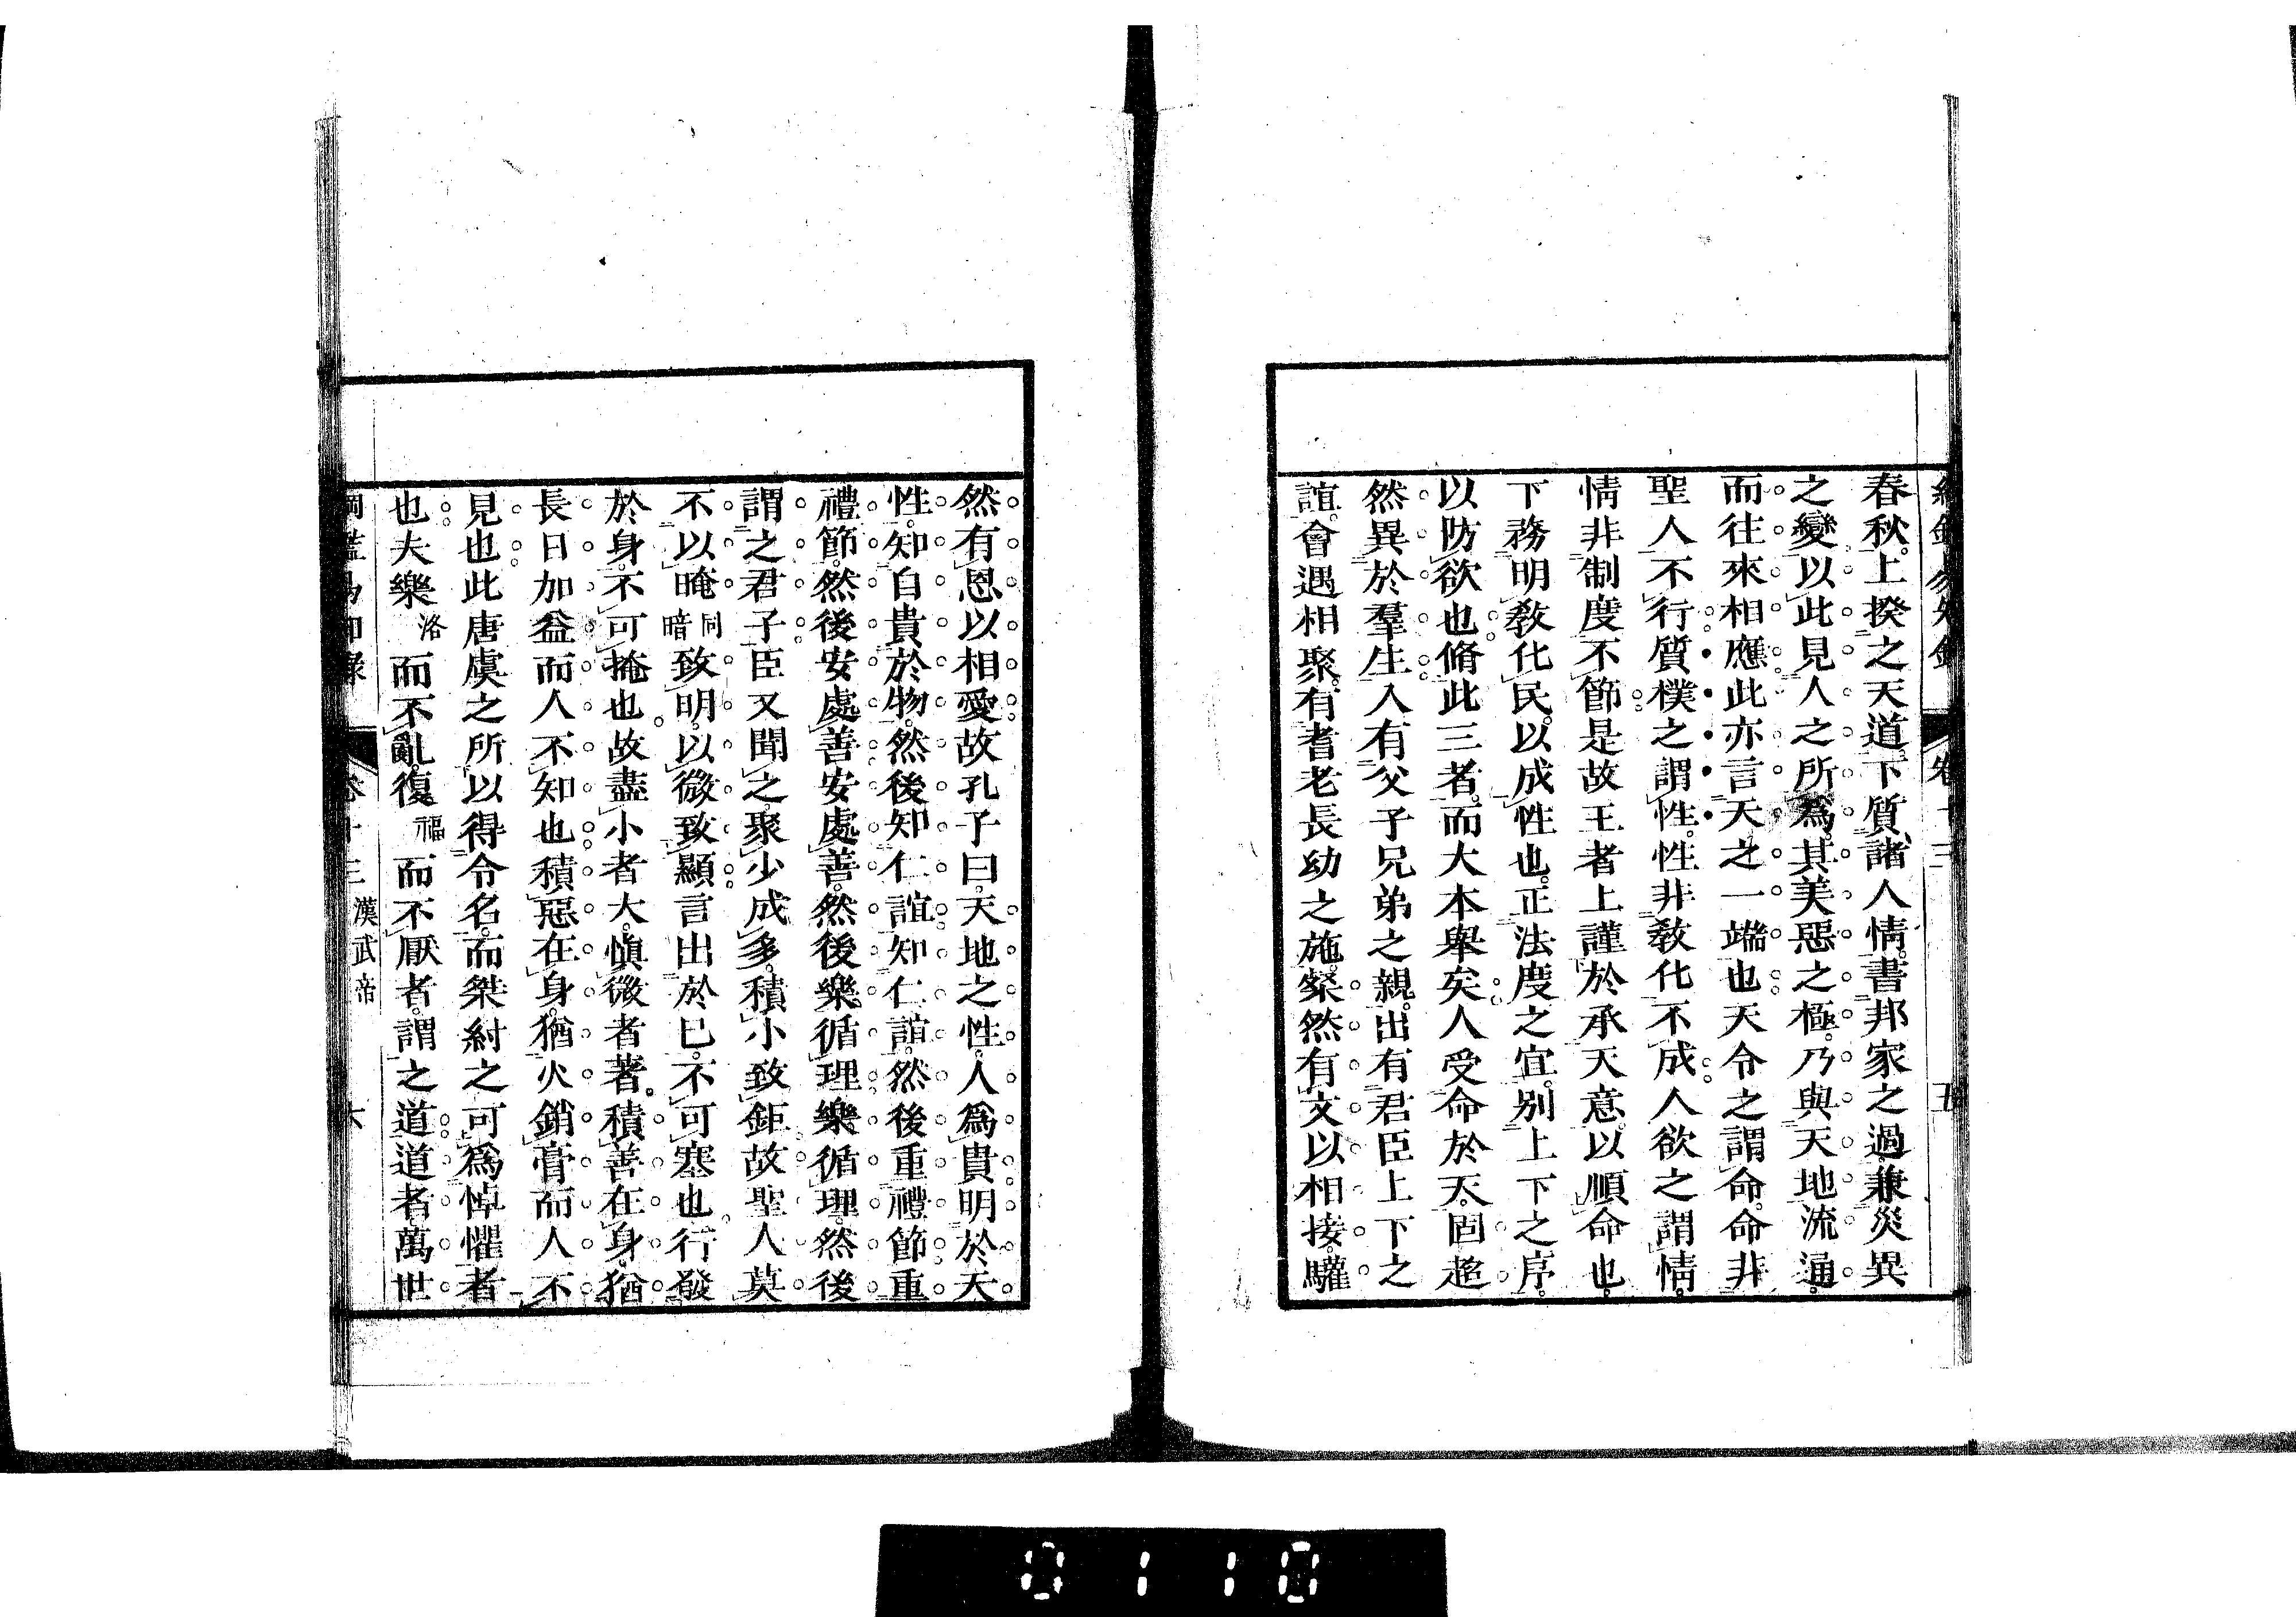 春秋上揆之天道下質諸人情書邦家之過兼災異
之變以此見人之所爲其美惡之極乃與天地流通
而往來相應此亦言天之一端也天令之謂命命非
聖人不行質樸之謂性性非敎化不成人欲之謂情
情非制度不節是故王者上謹於承天意以順命也
下務明敎化民以成性也正法度之宜別上下之序
以防欲也脩此三者而大本舉矣人受命於天固超
然異於羣生入有父子兄弟之親出有君臣上下之
誼會遇相聚有耆老長幼之施粲然有文以相接驩
然有恩以相愛故孔子曰天地之性人爲貴明於天
性知自貴於物然後知仁誼知仁誼然後重禮節重
禮節然後安處善安處善然後樂循理樂循理然後
謂之君子臣又聞之聚少成多積小致鉅故聖人莫
不以晻同暗致明以微致顯言出於已不可塞也行發
於身不可掩也故盡小者大愼微者著積善在身猶
長日加益而人不知也積惡在身猶火銷膏而人不
見也此唐虞之所以得令名而桀紂之可爲悼懼者
也夫樂洛而不亂復福而不厭者謂之道道者萬世
卷十三 漢武帝 六
0110